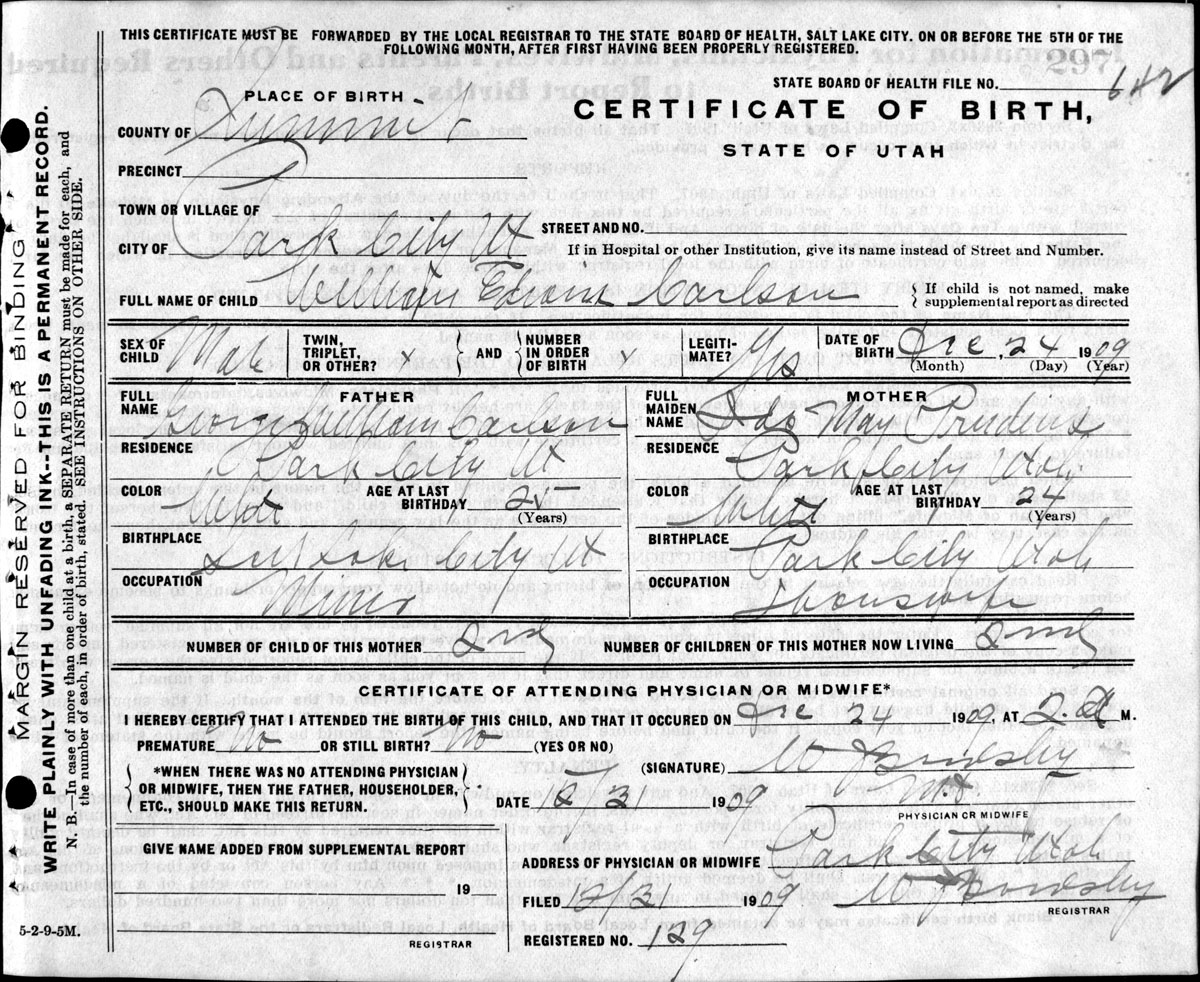 THIS CERTIFICATE MUST BE FORWARDED BY THE LOCAL REGISTRAR TO THE STATE BOARD OF HEALTH, SALT LAKE CITY. ON OR BEFORE THE 5TH OF THE
FOLLOWING MONTH, AFTER FIRST HAVING BEEN PROPERLY REGISTERED.
STATE BOARD OF HEALTH FILE NO. 642
PLACE OF BIRTH
CERTIFICATE OF BIRTH,
STATE OF UTAH
COUNTY OF Summit
PRECINCT
TOWN OR VILLAGE OF
STREET AND NO.
CITY OF Park City Ut
If in Hospital or other Institution, give its name instead of Street and Number.
FULL NAME OF CHILD William Carlson
If child is not named, make
supplemental report as directed
SEX OF CHILD Male
TWIN, TRIPLET, OR OTHER?
AND
NUMBER IN ORDER OF BIRTH
LEGITIMATE? Yes
DATE OF BIRTH Dec, 24 1909
(Month) (Day) (Year)
FATHER
FULL NAME George William Carlson
RESIDENCE Park City Ut
COLOR White
AGE AT LAST BIRTHDAY 25
(Years)
BIRTHPLACE City Ut
OCCUPATION Miner
MOTHER
FULL MAIDEN NAME Ida May
RESIDENCE Park City Utah
COLOR White
AGE AT LAST BIRTHDAY 24
(Years)
BIRTHPLACE Park City Utah
OCCUPATION Housewife
NUMBER OF CHILD OF THIS MOTHER 2nd
NUMBER OF CHILDREN OF THIS MOTHER NOW LIVING 2nd
CERTIFICATE OF ATTENDING PHYSICIAN OR MIDWIFE*
I HEREBY CERTIFY THAT I ATTENDED THE BIRTH OF THIS CHILD, AND THAT IT OCCURED ON Dec 24 1909, AT 2.A M.
PREMATURE No OR STILL BIRTH? No (YES OR NO)
*WHEN THERE WAS NO ATTENDING PHYSICIAN
OR MIDWIFE, THEN THE FATHER, HOUSEHOLDER,
ETC., SHOULD MAKE THIS RETURN.
(SIGNATURE) W J Bardsley
M.D.
PHYSICIAN OR MIDWIFE
DATE 12/31 1909
GIVE NAME ADDED FROM SUPPLEMENTAL REPORT
19
REGISTRAR
ADDRESS OF PHYSICIAN OR MIDWIFE Park City Utah
FILED 12/31 1909 W J Bardsley
REGISTRAR
REGISTERED NO. 129
5-2-9-5M.
MARGIN RESERVED FOR BINDING
WRITE PLAINLY WITH UNFADING INK--THIS IS A PERMANENT RECORD.
N. B.—In case of more than one child at a birth, a SEPARATE RETURN must be made for each, and
the number of each, in order of birth, stated. SEE INSTRUCTIONS ON OTHER SIDE.